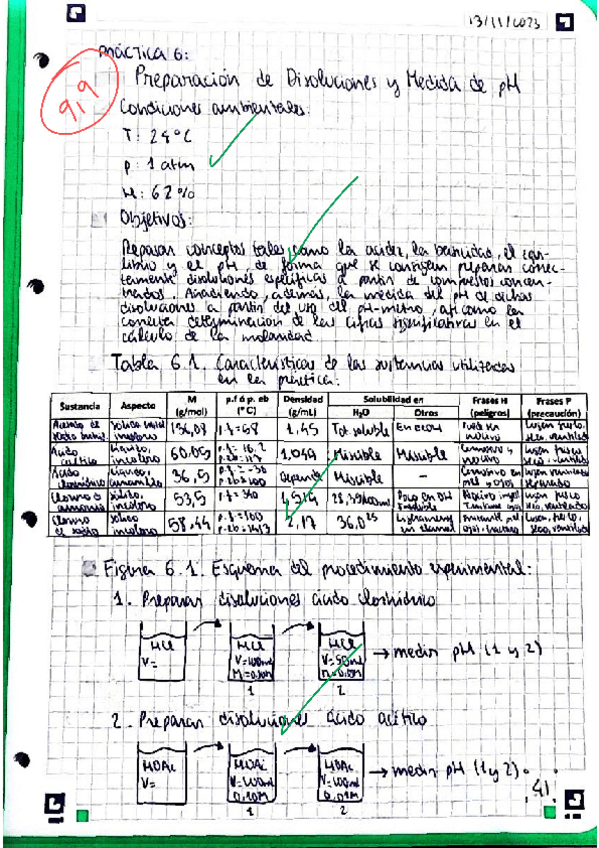 13/11/2023
PRÁCTICA 6:
9,9
Preparación de Disoluciones y Medida de pH
Condiciones ambientales:
T: 24°C
p: 1 atm
H: 62%
Objetivos:
Repasar conceptos tales como la acidez, la basicidad, el equi-
librio y el pH de forma que se consigan preparar correc-
tamente disoluciones específicas a partir de compuestos concen-
trados. Añadiendo, además, la medida del pH de dichas
disoluciones a partir del uso del pH-metro, así como la
correcta determinación de las cifras significativas en el
cálculo de la molaridad
Tabla 6.1. Características de las sustancias utilizadas
en la práctica:
Sustancia Aspecto M (g/mol) p.f ó p. eb (°C) Densidad (g/mL) Solubilidad en H2O Otros Frases H (peligros) Frases P (precaución)
Acetato de sodio Sólido incoloro 136,08 p.f=58 1,45 Tot. soluble En EtOH
Ácido acético Líquido, incoloro 60.05 p.f= 16,2 1,049 Miscible Miscible
Ácido clorhídrico Líquido, 36,5 Depende Miscible -
Cloruro de amonio Sólido, incoloro 53,5 p.f= 340
Cloruro de sodio Sólido incoloro 58,44 2,17 36,0
Figura 6.1. Esquema del procedimiento experimental:
1. Preparar disoluciones ácido clorhídrico
HCl HCl HCl
V= V=100mL V=50mL → medir pH (1 y 2)
1 2
2. Preparar disoluciones ácido acético
HOAc HOAc HOAc
V= V=100mL V=100mL → medir pH (1 y 2)
1 2
.41.